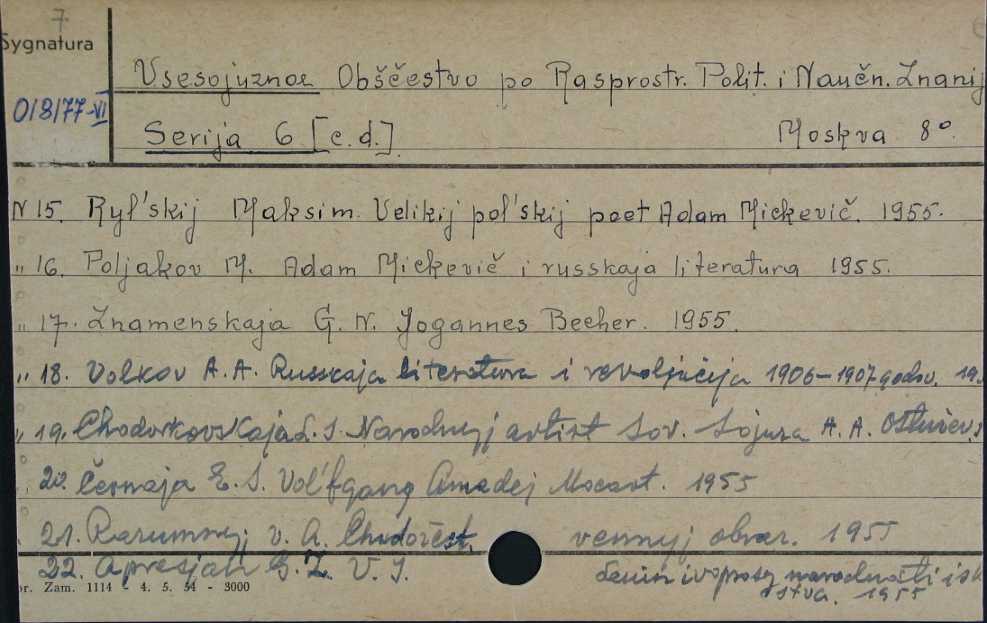 7.
Sygnatura
Vsesojuznoe Obščestvo po Rasprostr. Polit. i Naučn. Znanij
018177-VI
Serija 6 [c.d.] Moskva 8°.
N 15. Ryl'skij Maksim. Velikij pol'skij poet Adam Mickevič. 1955.
„ 16. Poljakov M. Adam Mickevič i russkaja literatura 1955.
„ 17. Znamenskaja G. N. Jogannes Becher. 1955.
„ 18. Volkov A. A. Russkaja literatura i revoljucija 1906-1907 godov. 19
„ 19. Chodorkovskaja L. I. Narodnyj artist Sov. Sojuza A. A. Ostužev.
20. Černaja E. S. Vol'fgang Amadej Mocart. 1955
21. Razumnyj V. A. Chudožest. vennyj obraz. 1955
22. Apresjan G. Z. V. I. Lenin i voprosy narodnosti isk
stva. 1955
r. Zam. 1114 - 4. 5. 54 - 3000